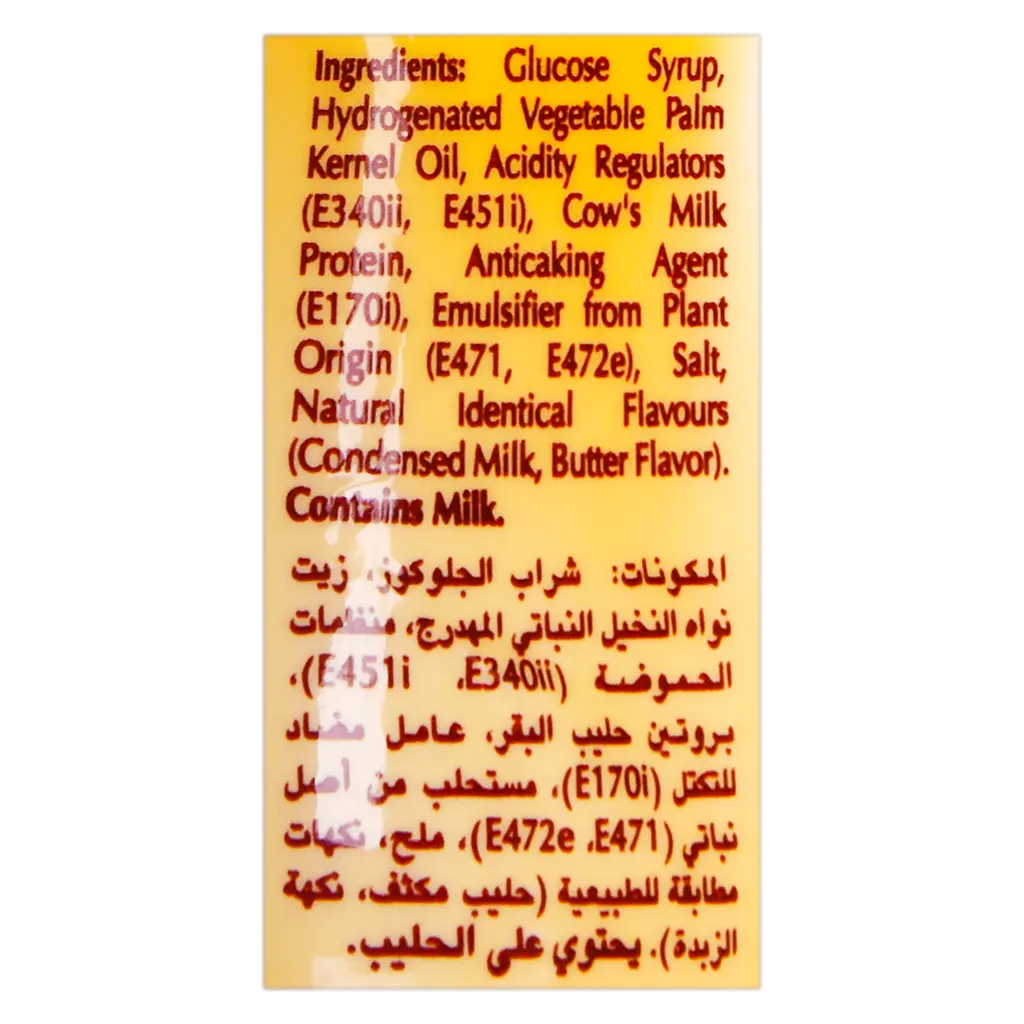 Ingredients: Glucose Syrup,
Hydrogenated Vegetable Palm
Kernel Oil, Acidity Regulators
(E340ii, E451i), Cow's Milk
Protein, Anticaking Agent
(E170i), Emulsifier from Plant
Origin (E471, E472e), Salt,
Natural Identical Flavours
(Condensed Milk, Butter Flavor).
Contains Milk.
المكونات: شراب الجلوكوز، زيت
نواه النخيل النباتي المهدرج، منظمات
الحموضة (E340ii، E451i)،
بروتين حليب البقر، عامل مضاد
للتكتل (E170i)، مستحلب من أصل
نباتي (E471، E472e)، ملح، نكهات
مطابقة للطبيعية (حليب مكثف، نكهة
الزبدة). يحتوي على الحليب.